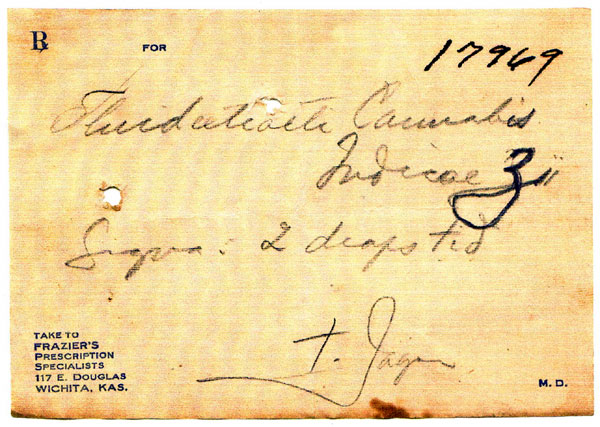 Rx FOR
17969
Fluidextracti Cannabis
Indicae ʒ ii
Signa: 2 drops tid
TAKE TO
FRAZIER'S
PRESCRIPTION
SPECIALISTS
117 E. DOUGLAS
WICHITA, KAS.
M. D.